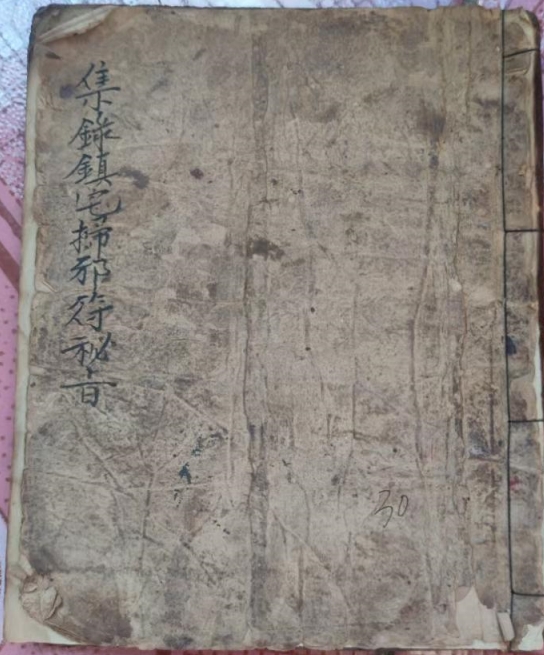 集錄鎮宅掃邪符秘旨
30